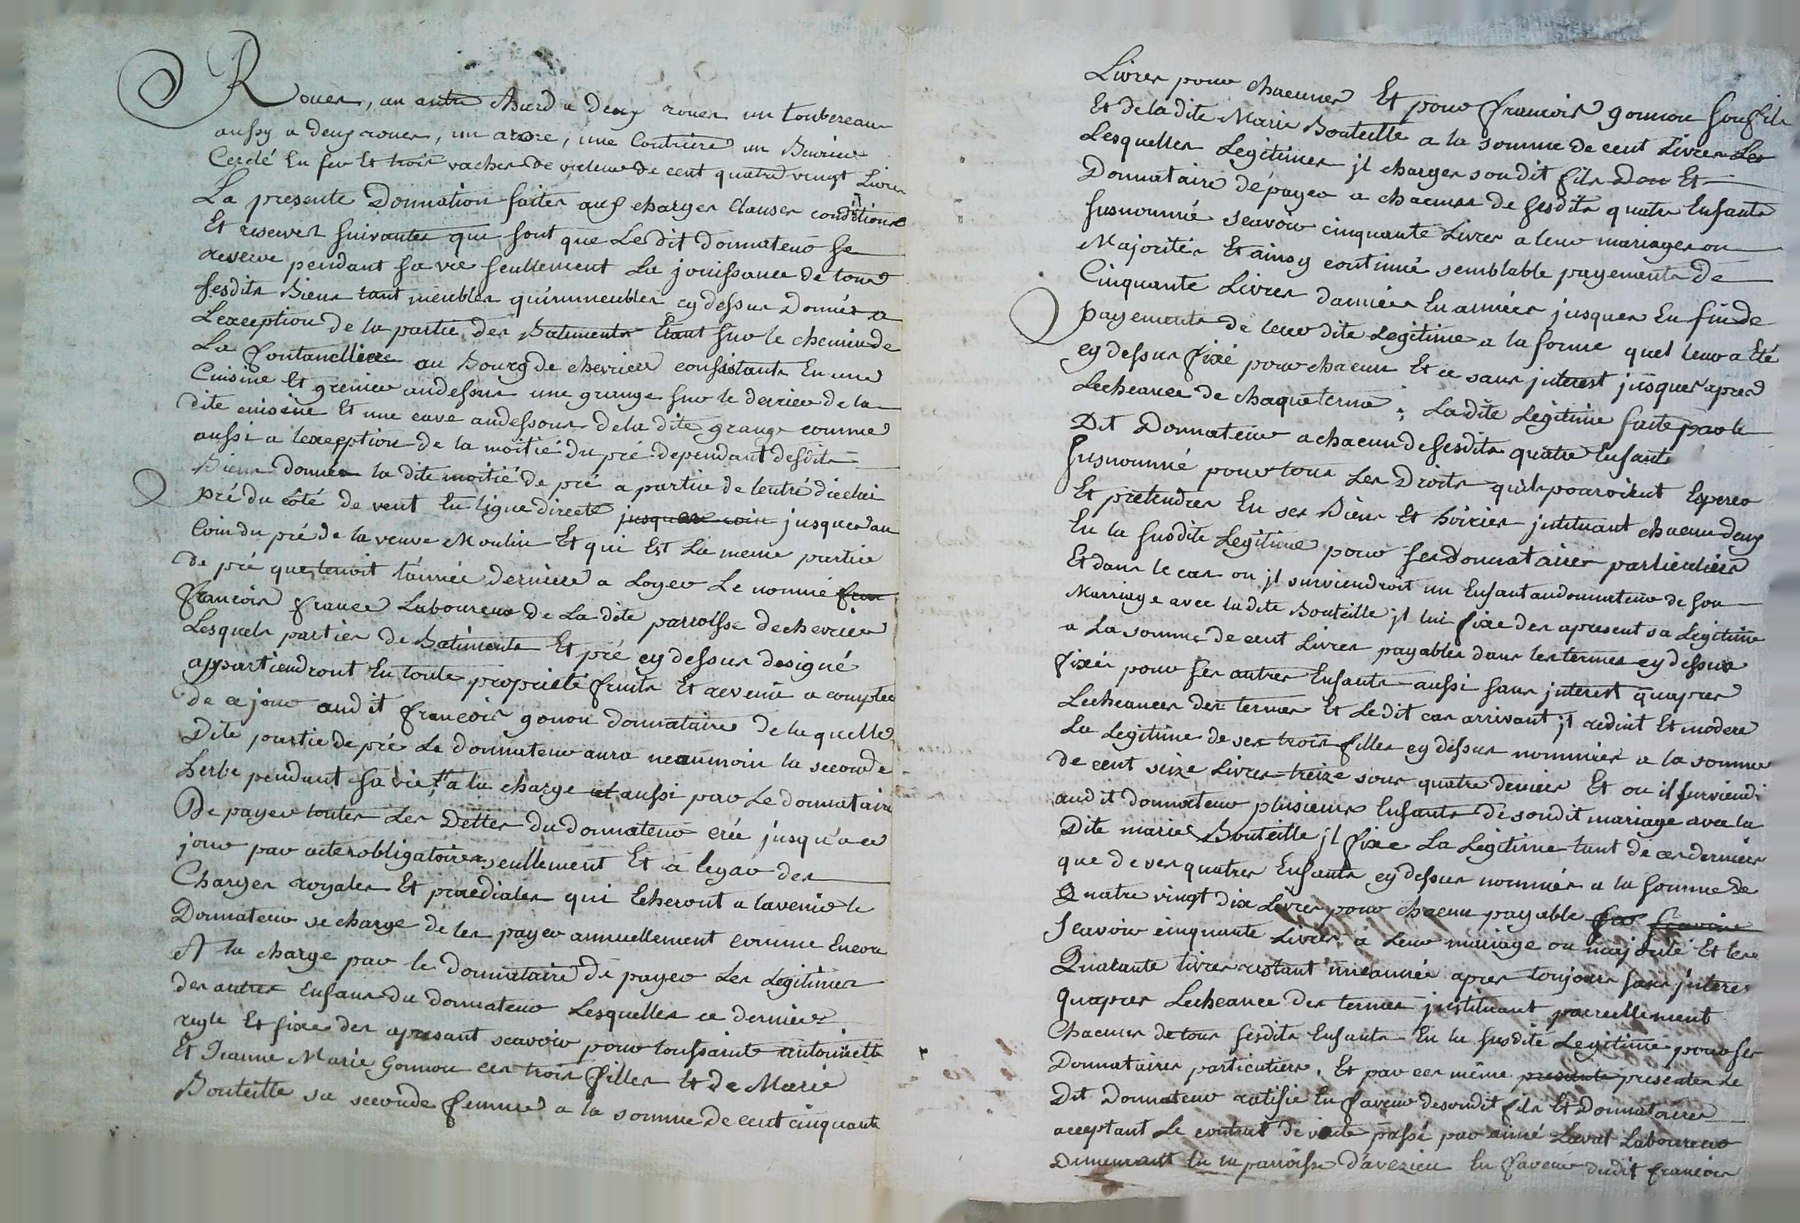 Roues, un autre Chard a deux roues un tombereau
aussy a deux roues, un arare, une Coutriere un
Cerclé En fer Et trois vaches de valeur de cent quatre vingt Livres
La presente Donnation faitte aux charges Clauses conditions
Et reserves suivantes qui sont que Le dit donnateur se
reserve pendant sa vie seullement La jouissance de tous
sesdits Biens tant meubles qu'immeubles cy dessus Donnés a
Lexception de la partie des Batiments Etant sur le chemin de
La fontanelliere au Bourg de chevrier consistants En une
Cuisine Et grenier audessus une grange sur le derrier de la
dite cuisine Et une cave audessous de la dite grange comme
aussi a lexception de la moitié du pré dependant desdits
Biens donnes la dite moitié de pré a partir de lentré dicelui
pré du côté de vent En Ligne directe jusquau coin jusques au
Coin du pré de la veuve Moulin Et qui Est La meme partie
De pré que tenoit l'année derniere a Loyer Le nommé fran
françois france Laboureur de La dite parroisse de chevrier
Lesquels parties de Batiments Et pré cy dessus designé
appartiendront En toute proprieté fruits Et revenu a compter
de ce jour audit françois gonon donnataire de laquelle
Dite partie de pré Le donnateur aura neanmoin la seconde
herbe pendant sa vie, a la charge et aussi par Le donnataire
De payer toutes Les Dettes du donnateur crée jusqu'a ce
jour par actes obligatoires seullement Et a legar des
Charges royales Et praediales qui Echeront a lavenir le
Donnateur se charge de les payer annuellement comme Encore
A la charge par le Donnataire de payer Les Legitimes
des autres Enfans du donnateur Lesquelles ce dernier
regle Et fixe des apresant scavoir pour toussainte antoinette
Et Jeanne Marie Gonnon ces trois filles Et de Marie
Bouteille sa seconde femme a la somme de cent cinquante
Livres pour chacunes Et pour françois gonnon son fils
Et de la dite Marie Bouteille a la somme de cent Livres Les
Lesquelles Legitimes jl charges son dit fils Don Et
Donnataire de payer a chacuns de sesdits quatre Enfants
susnommé scavoir cinquante Livres a leur mariages ou
Majorités Et ainsy continué semblable payements de
Cinquante Livres dannées En années jusques En fin de
payements de leur dite Legitime a la forme quel leur a Eté
cy dessus fixé pour chacun Et ce sans jnterest jusques apres
Lecheance de chaque terme; La dite Legitime faite par le
Dit Donnateur a chacun de sesdits quatre Enfants
susnommé pour tous Les Droits quils pouroient Esperer
Et pretendres En ses Biens Et hoiries jnstituant chacun deux
En la susdite Legitime pour ses donnataires particuliers
Et dans le cas ou jl surviendroit un Enfant au donnateur de son
Marriage avec ladite Bouteille jl lui fixe des apresent sa Legitime
a La somme de cent Livres payables dans les termes cy dessus
fixés pour ses autres Enfants aussi sans jnterest quapres
Lecheances des termes Et Le dit cas arrivant jl reduit Et modere
La Legitime de ses trois filles cy dessus nommées a la somme
de cent seize Livres treize sous quatre deniers Et ou il surviendr
audit donnateur plusieurs Enfants de son dit mariage avec la
Dite marie Bouteille jl fixe La Legitime tant de ces derniers
que de ces quatres Enfants cy dessus nommés a la somme de
Quatre vingt dix Livres pour chacun payable scavoir
Scavoir cinquante Livres a Leur mariage ou majorité Et les
Quarante livres restant une année apres toujours sans jnteres
quapres Lecheance des termes jnstituant pareillement
Chacuns de tous sesdits Enfants En la susdite Legitime pour ses
Donnataires particuliers. Et par ces même presente presentes Le
Dit Donnateur ratifie En faveur desondit fils Et Donnataire
acceptant Le contrat de vente passé par aimé Laval Laboureur
Demeurant En la parroisse d'avezieu En faveur dudit françois